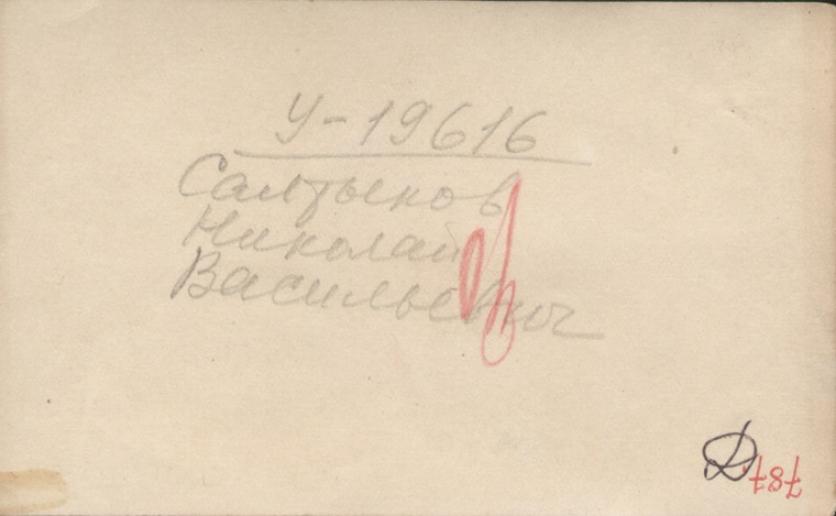 У-19616
Салтыков
Николай
Васильевич
787